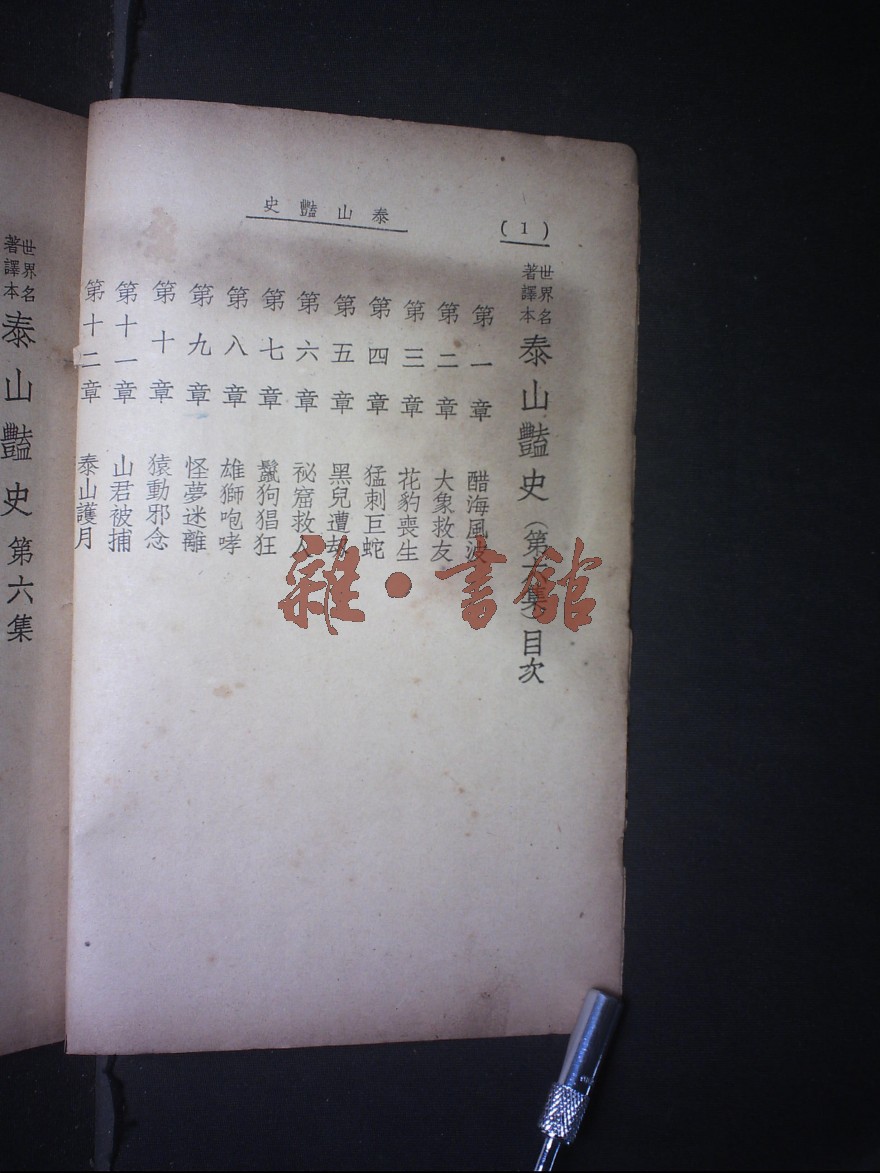 泰山豔史
(1)
世界名著譯本 泰山豔史（第六集）目次
第一章 醋海風波
第二章 大象救友
第三章 花豹喪生
第四章 猛刺巨蛇
第五章 黑兒遭劫
第六章 祕窟救人
第七章 鬣狗猖狂
第八章 雄獅咆哮
第九章 怪夢迷離
第十章 猿動邪念
第十一章 山君被捕
第十二章 泰山護月
世界名著譯本 泰山豔史 第六集
雜·書館